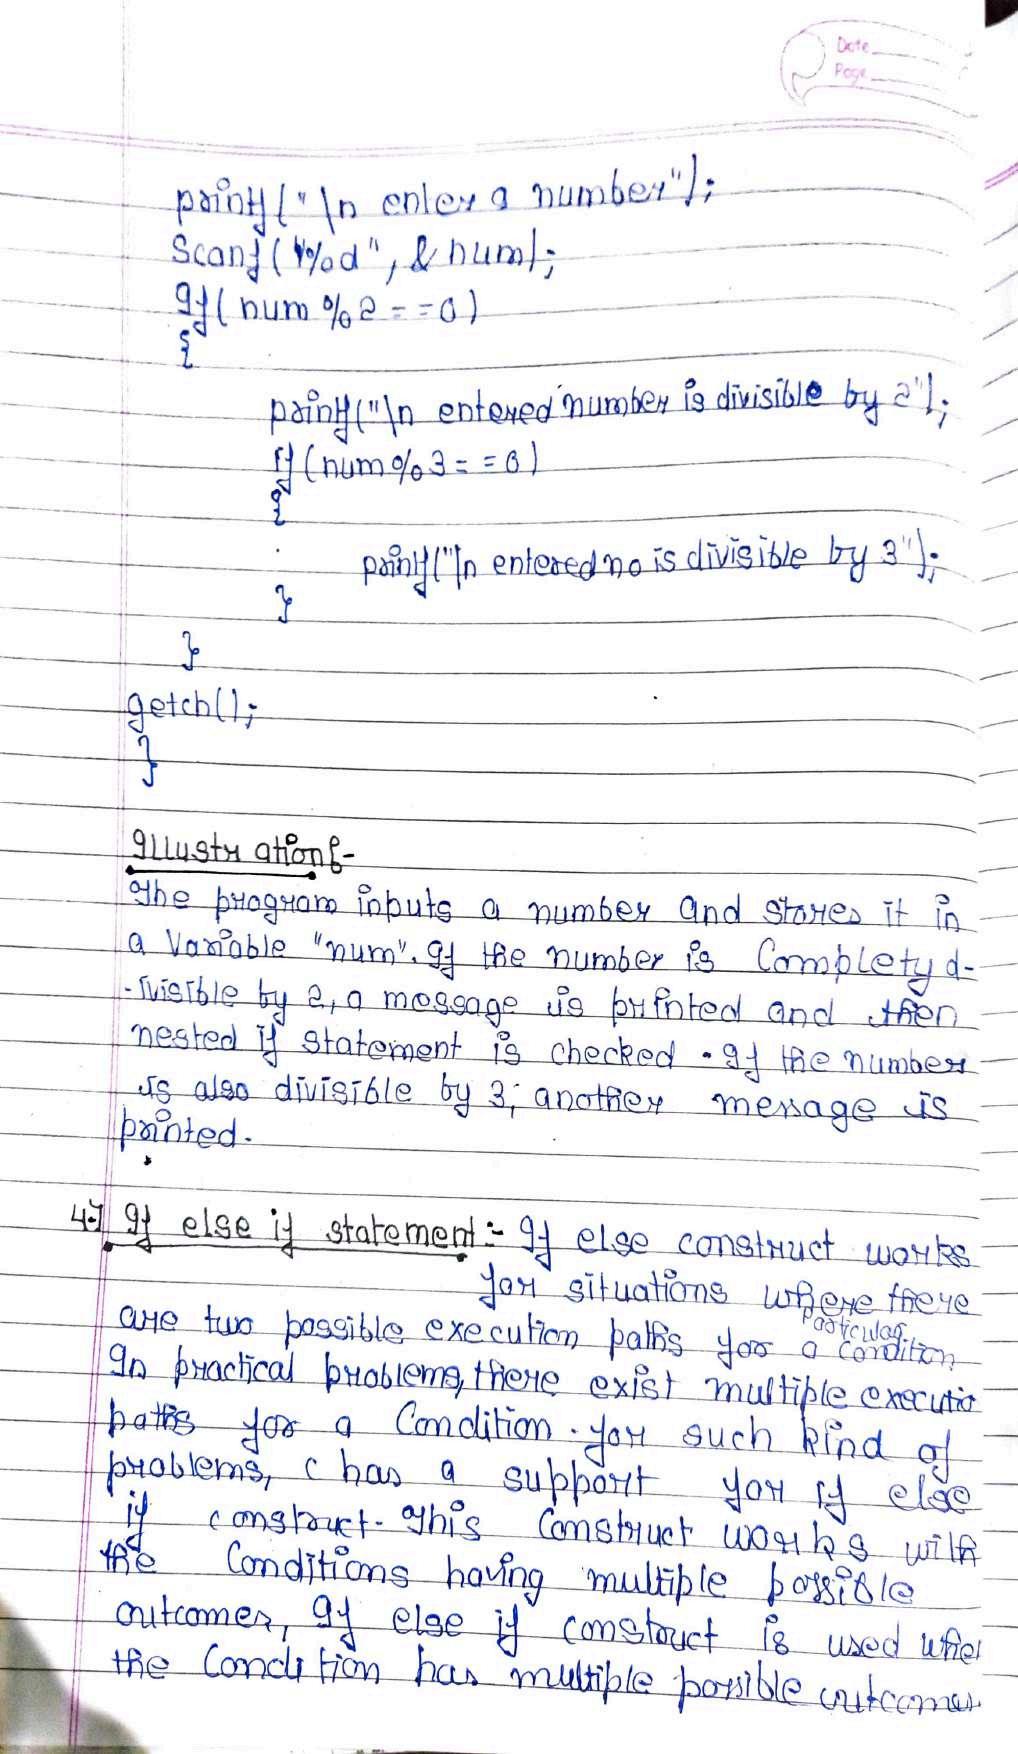 Date
Page
printf("\n enter a number");
Scanf("%d", & num);
If(num % 2 = = 0)
{
printf("\n entered number is divisible by 2");
if(num % 3 = = 0)
{
printf("\n entered no is divisible by 3");
}
}
getch();
}
Illustration:-
The program inputs a number and stores it in
a Variable "num". If the number is Complety d-
-ivisible by 2, a message is printed and then
nested if statement is checked. If the number
is also divisible by 3; another message is
printed.
4.] If else if statement:- If else construct works
for situations where there
are two possible execution paths for a particular condition
In practical problems, there exist multiple executio
paths for a Condition. for such kind of
problems, C has a support for if else
if construct. This Construct works with
the Conditions having multiple possible
outcomes, If else if construct is used whe
the Condition has multiple possible outcomes